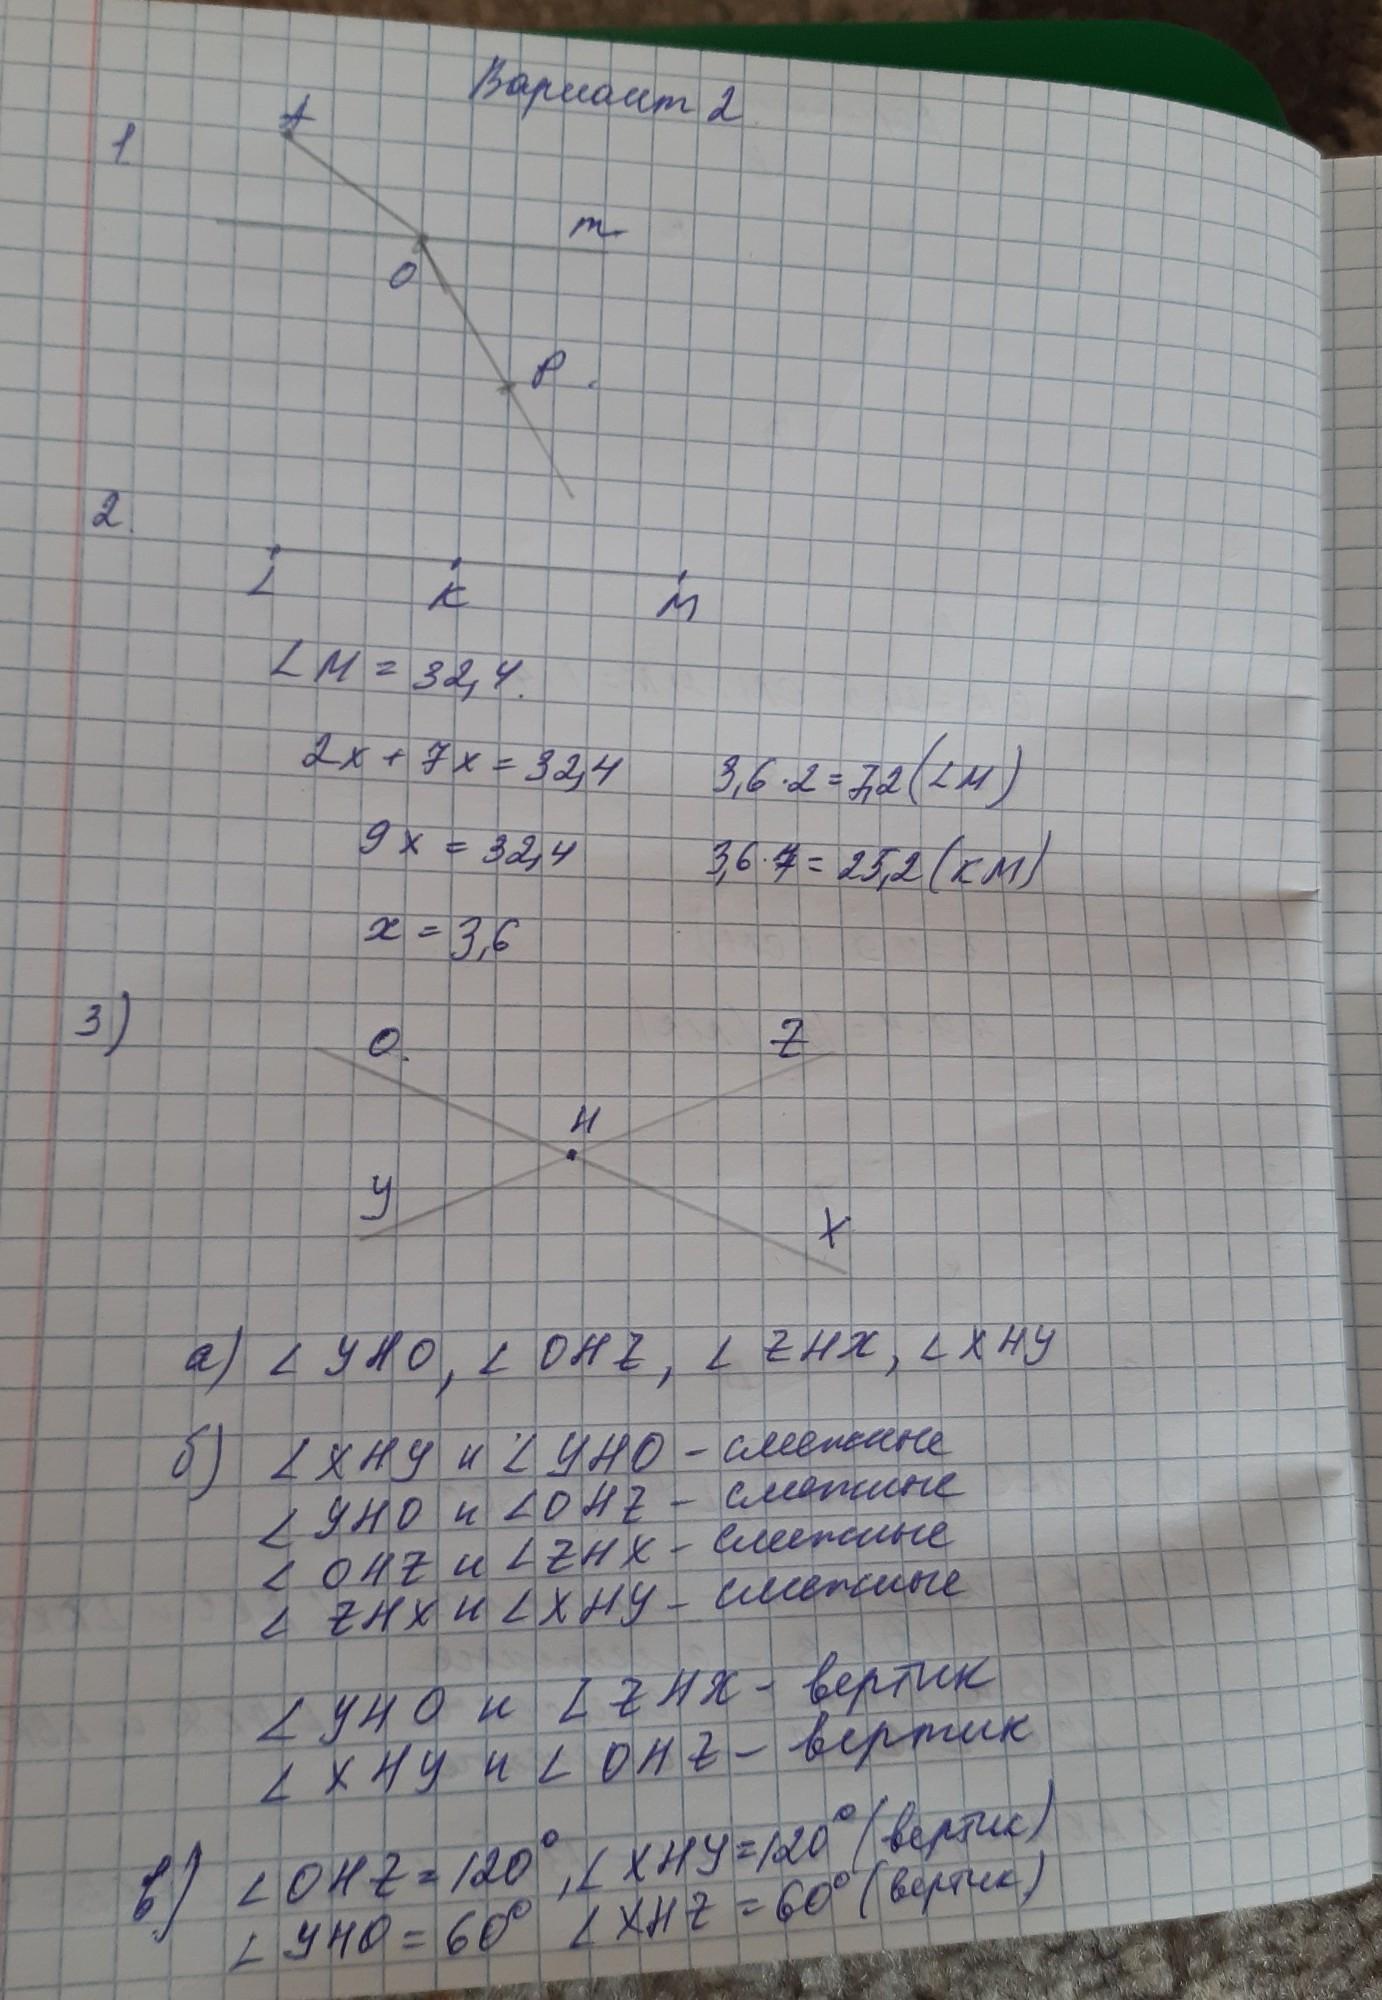 Вариант 2
1
A
m
O
P
2.
L K M
LM = 32,4.
2x + 7x = 32,4 3,6·2=7,2(LM)
9x = 32,4 3,6·7=25,2(KM)
x = 3,6
3)
O Z
H
У X
а) ∠УHO, ∠OHZ, ∠ZHX, ∠XHУ
б) ∠XHУ и ∠УHO - смежные
∠УHO и ∠OHZ - смежные
∠OHZ и ∠ZHX - смежные
∠ZHX и ∠XHУ - смежные
∠УHO и ∠ZHX - вертик
∠XHУ и ∠OHZ - вертик
в) ∠OHZ=120°, ∠XHУ=120°(вертик)
∠УHO=60° ∠XHZ=60°(вертик)